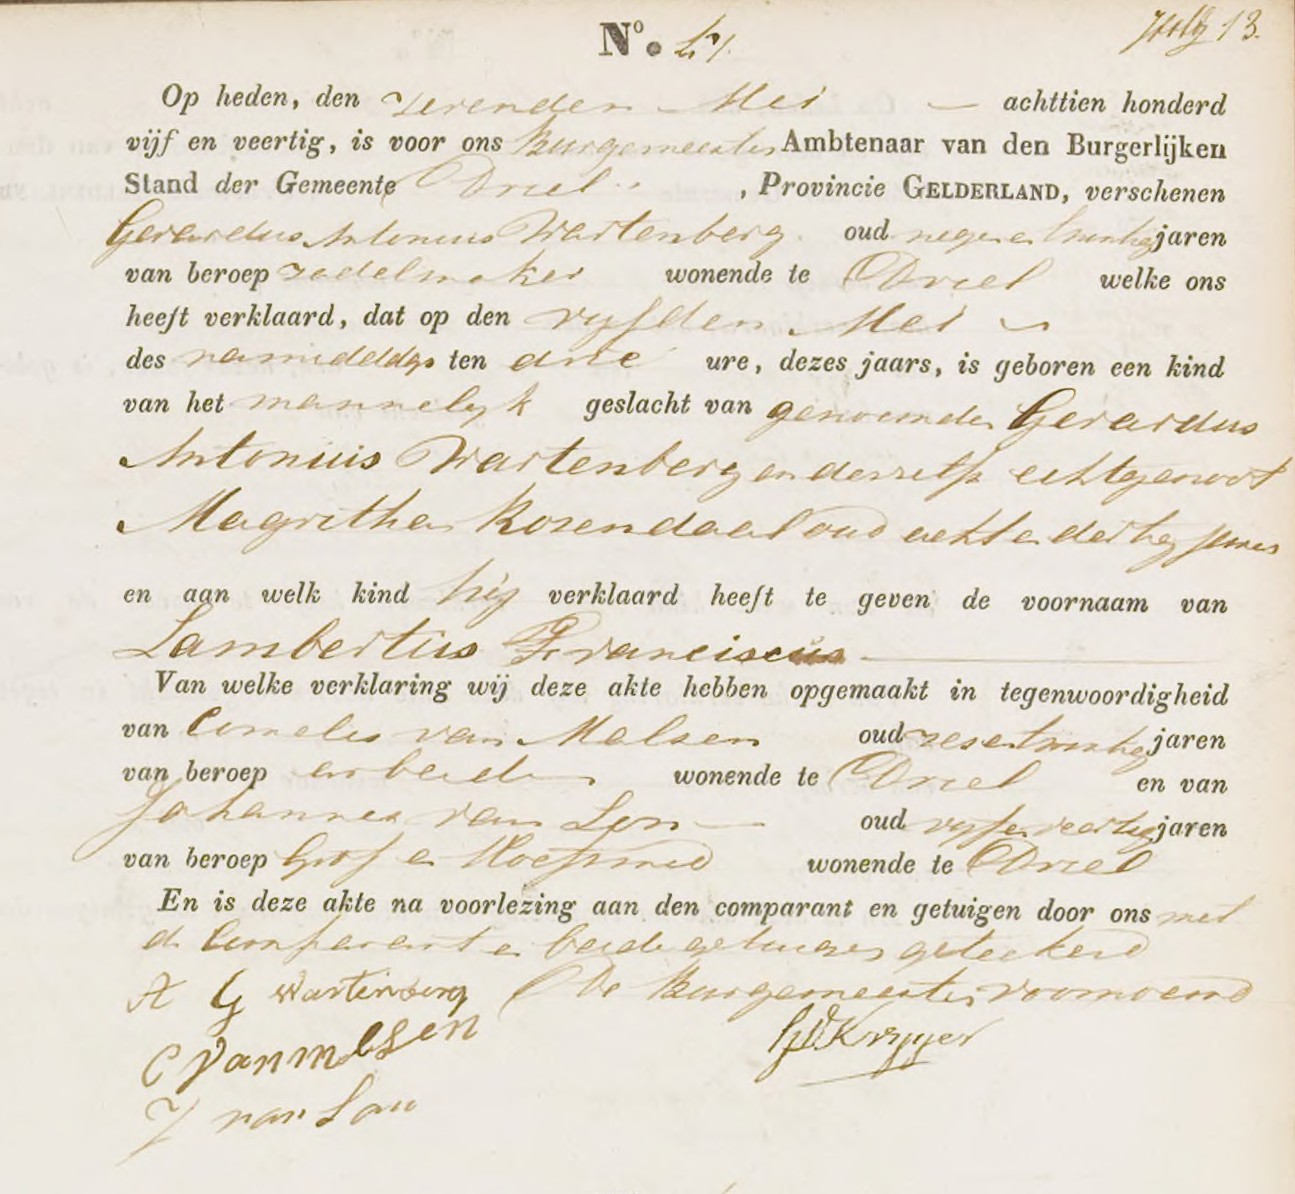 No.
Op heden, den zevenden Mei achttien honderd
vijf en veertig, is voor ons Burgemeester Ambtenaar van den Burgerlijken
Stand der Gemeente Driel, Provincie GELDERLAND, verschenen
Gerardus Antonius Wartenberg oud negenentwintig jaren
van beroep zadelmaker wonende te Driel welke ons
heeft verklaard, dat op den vyfden Mei
des namiddags ten drie ure, dezes jaars, is geboren een kind
van het mannelyk geslacht van genoemden Gerardus
Antonius Wartenberg en deszelfs echtgenoot
Magritha Rosendaal oud acht en dertig jaren
en aan welk kind hij verklaard heeft te geven de voornaam van
Lambertus Franciscus
Van welke verklaring wij deze akte hebben opgemaakt in tegenwoordigheid
van Cornelis van Malsen oud zesentwintig jaren
van beroep arbeider wonende te Driel en van
Johannes van oud vyfenveertig jaren
van beroep Grof en Hoefsmed wonende te Driel
En is deze akte na voorlezing aan den comparant en getuigen door ons met
de Comparant en beide getuigen geteekend
A G Wartenberg De Burgemeester voornoemd
C Van
J van